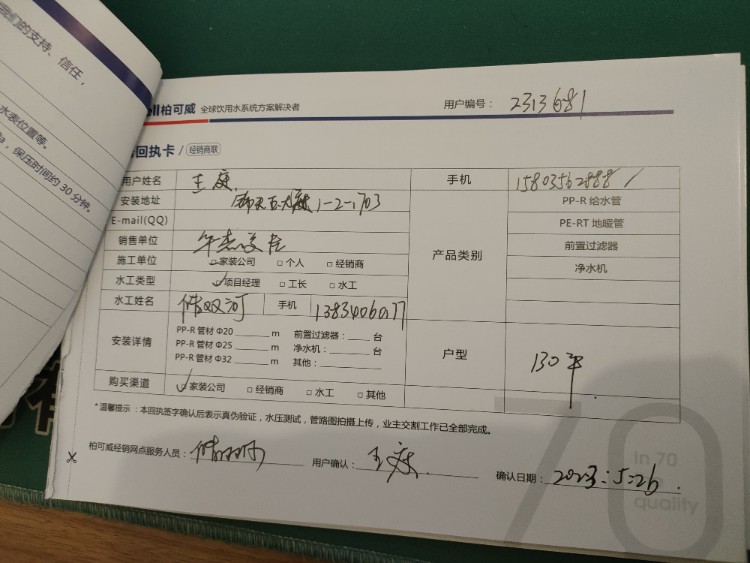 们的支持、信任，
水表位置等。
a，保压时间约 30 分钟。
ll柏可威 全球饮用水系统方案解决者 用户编号： 2313681
回执卡 / 经销商联
用户姓名 王庭 手机 15803562888
安装地址 1-2-1703 PP-R 给水管
E-mail(QQ) 产品类别 PE-RT 地暖管
销售单位 前置过滤器
施工单位 家装公司 □ 个人 □ 经销商 净水机
水工类型 项目经理 □ 工长 □ 水工
水工姓名 手机 13834060177
安装详情 PP-R 管材 Φ20 ______ m 前置过滤器：____ 台 户型 130平
PP-R 管材 Φ25 ______ m 净水机：____ 台
PP-R 管材 Φ32 ______ m 其他：
购买渠道 家装公司 □ 经销商 □ 水工 □ 其他
*温馨提示：本回执签字确认后表示真伪验证，水压测试，管路图拍摄上传，业主交割工作已全部完成。
柏可威经销网点服务人员： 用户确认： 王庭 确认日期： 2023.5.26
70
In 70
quality